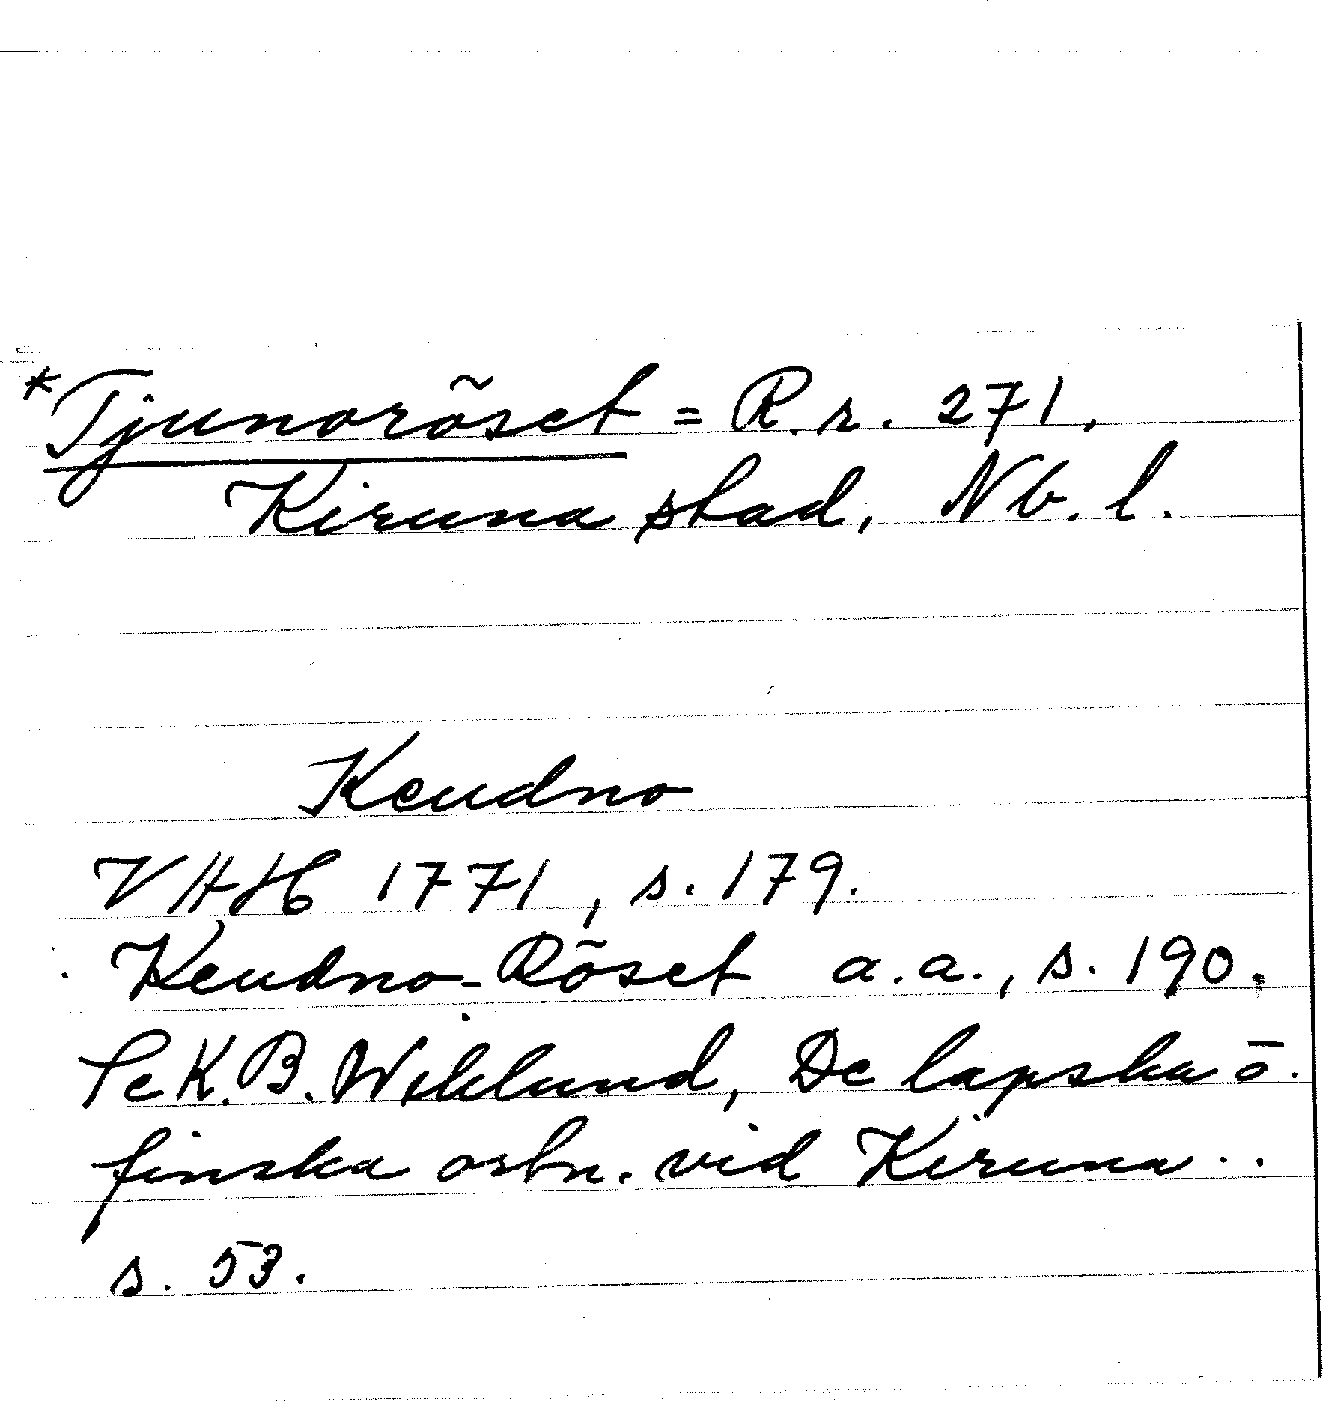 *Tjunoröset = R.r. 271,
Kiruna stad, Nb. l.
Keudno
VHH 1771, s. 179.
Keudno-Röset a.a., s. 190.
Se K.B. Wiklund, De lapska o.
finska ortn. vid Kiruna..
s. 53.